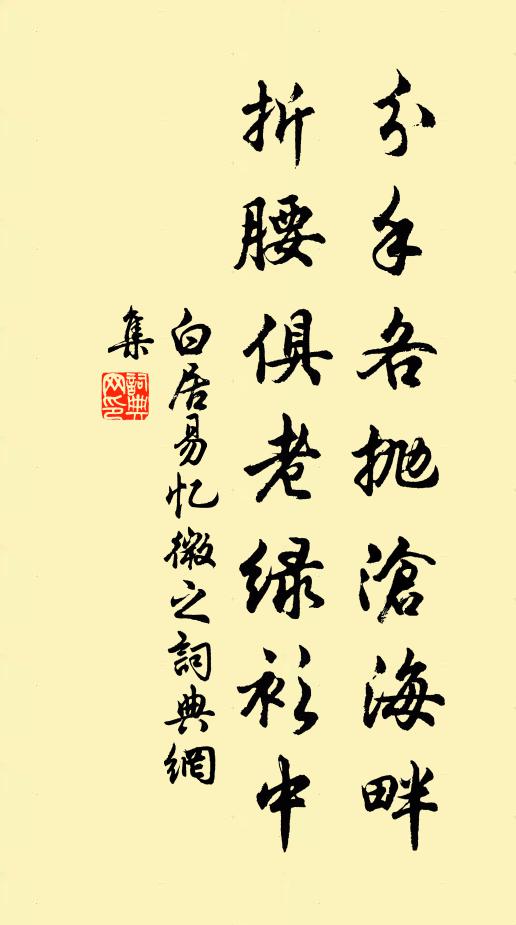 分手各抛滄海畔
折腰俱老绿衫中
白居易忆微之詞典網
集
詞典
网印